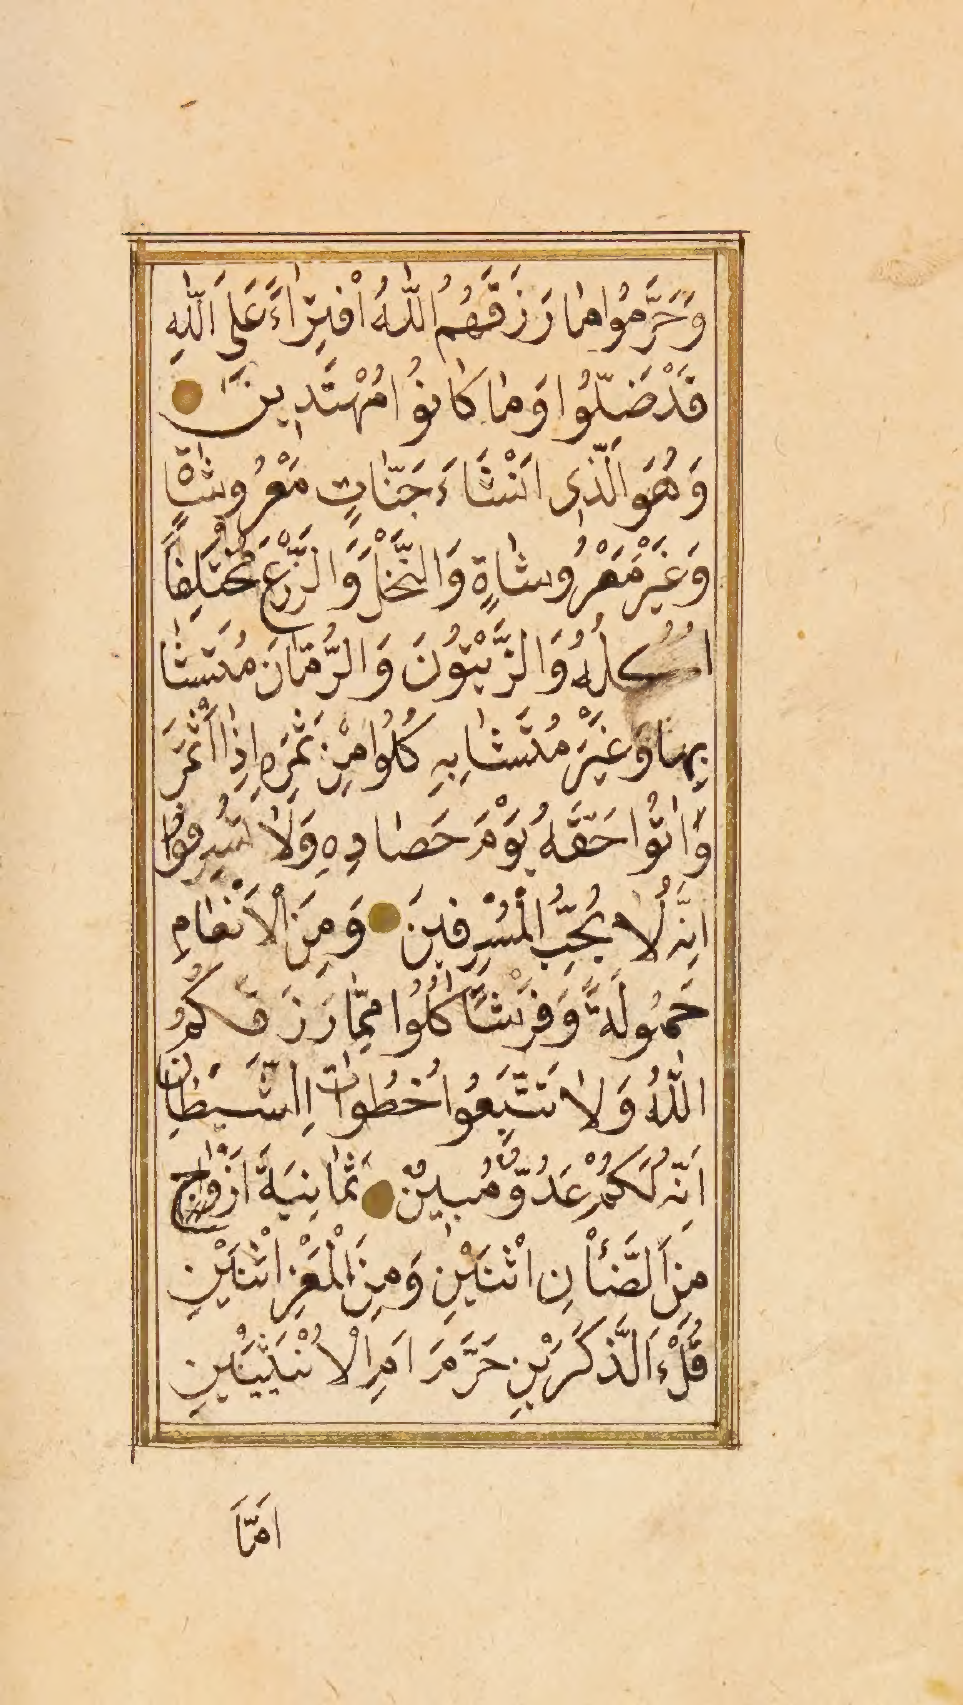 وَحَرَّمُوا مٰا رَزَقَهُمُ اللّٰهُ افْتِرٰاءً عَلَى اللّٰهِ
قَدْ ضَلُّوا وَمٰا كٰانُوا مُهْتَدِينَ
وَهُوَ الَّذِى اَنْشَاءَ جَنّٰاتٍ مَعْرُوشٰاةٍ
وَغَيْرَ مَعْرُوشٰاةٍ وَالنَّخْلَ وَالزَّرْعَ مُخْتَلِفًا
اُكُلُهُ وَالزَّيْتُونَ وَالرُّمّٰانَ مُتَشٰا
بِهًا وَغَيْرَ مُتَشٰابِهٍ كُلُوا مِنْ ثَمَرِهِ اِذٰا اَثْمَرَ
وَاٰتُوا حَقَّهُ يَوْمَ حَصٰادِهِ وَلٰا تُسْرِفُوا
اِنَّهُ لٰا يُحِبُّ الْمُسْرِفِينَ وَمِنَ الْاَنْعٰامِ
حَمُولَةً وَفَرْشًا كُلُوا مِمّٰا رَزَقَكُمُ
اللّٰهُ وَلٰا تَتَّبِعُوا خُطُوٰاتِ الشَّيْطٰانِ
اِنَّهُ لَكُمْ عَدُوٌّ مُبِينٌ ثَمٰانِيَةَ اَزْوٰاجٍ
مِنَ الضَّأْنِ اثْنَيْنِ وَمِنَ الْمَعْزِ اثْنَيْنِ
قُلْ ءَالذَّكَرَيْنِ حَرَّمَ اَمِ الْاُنْثَيَيْنِ
اَمَّا